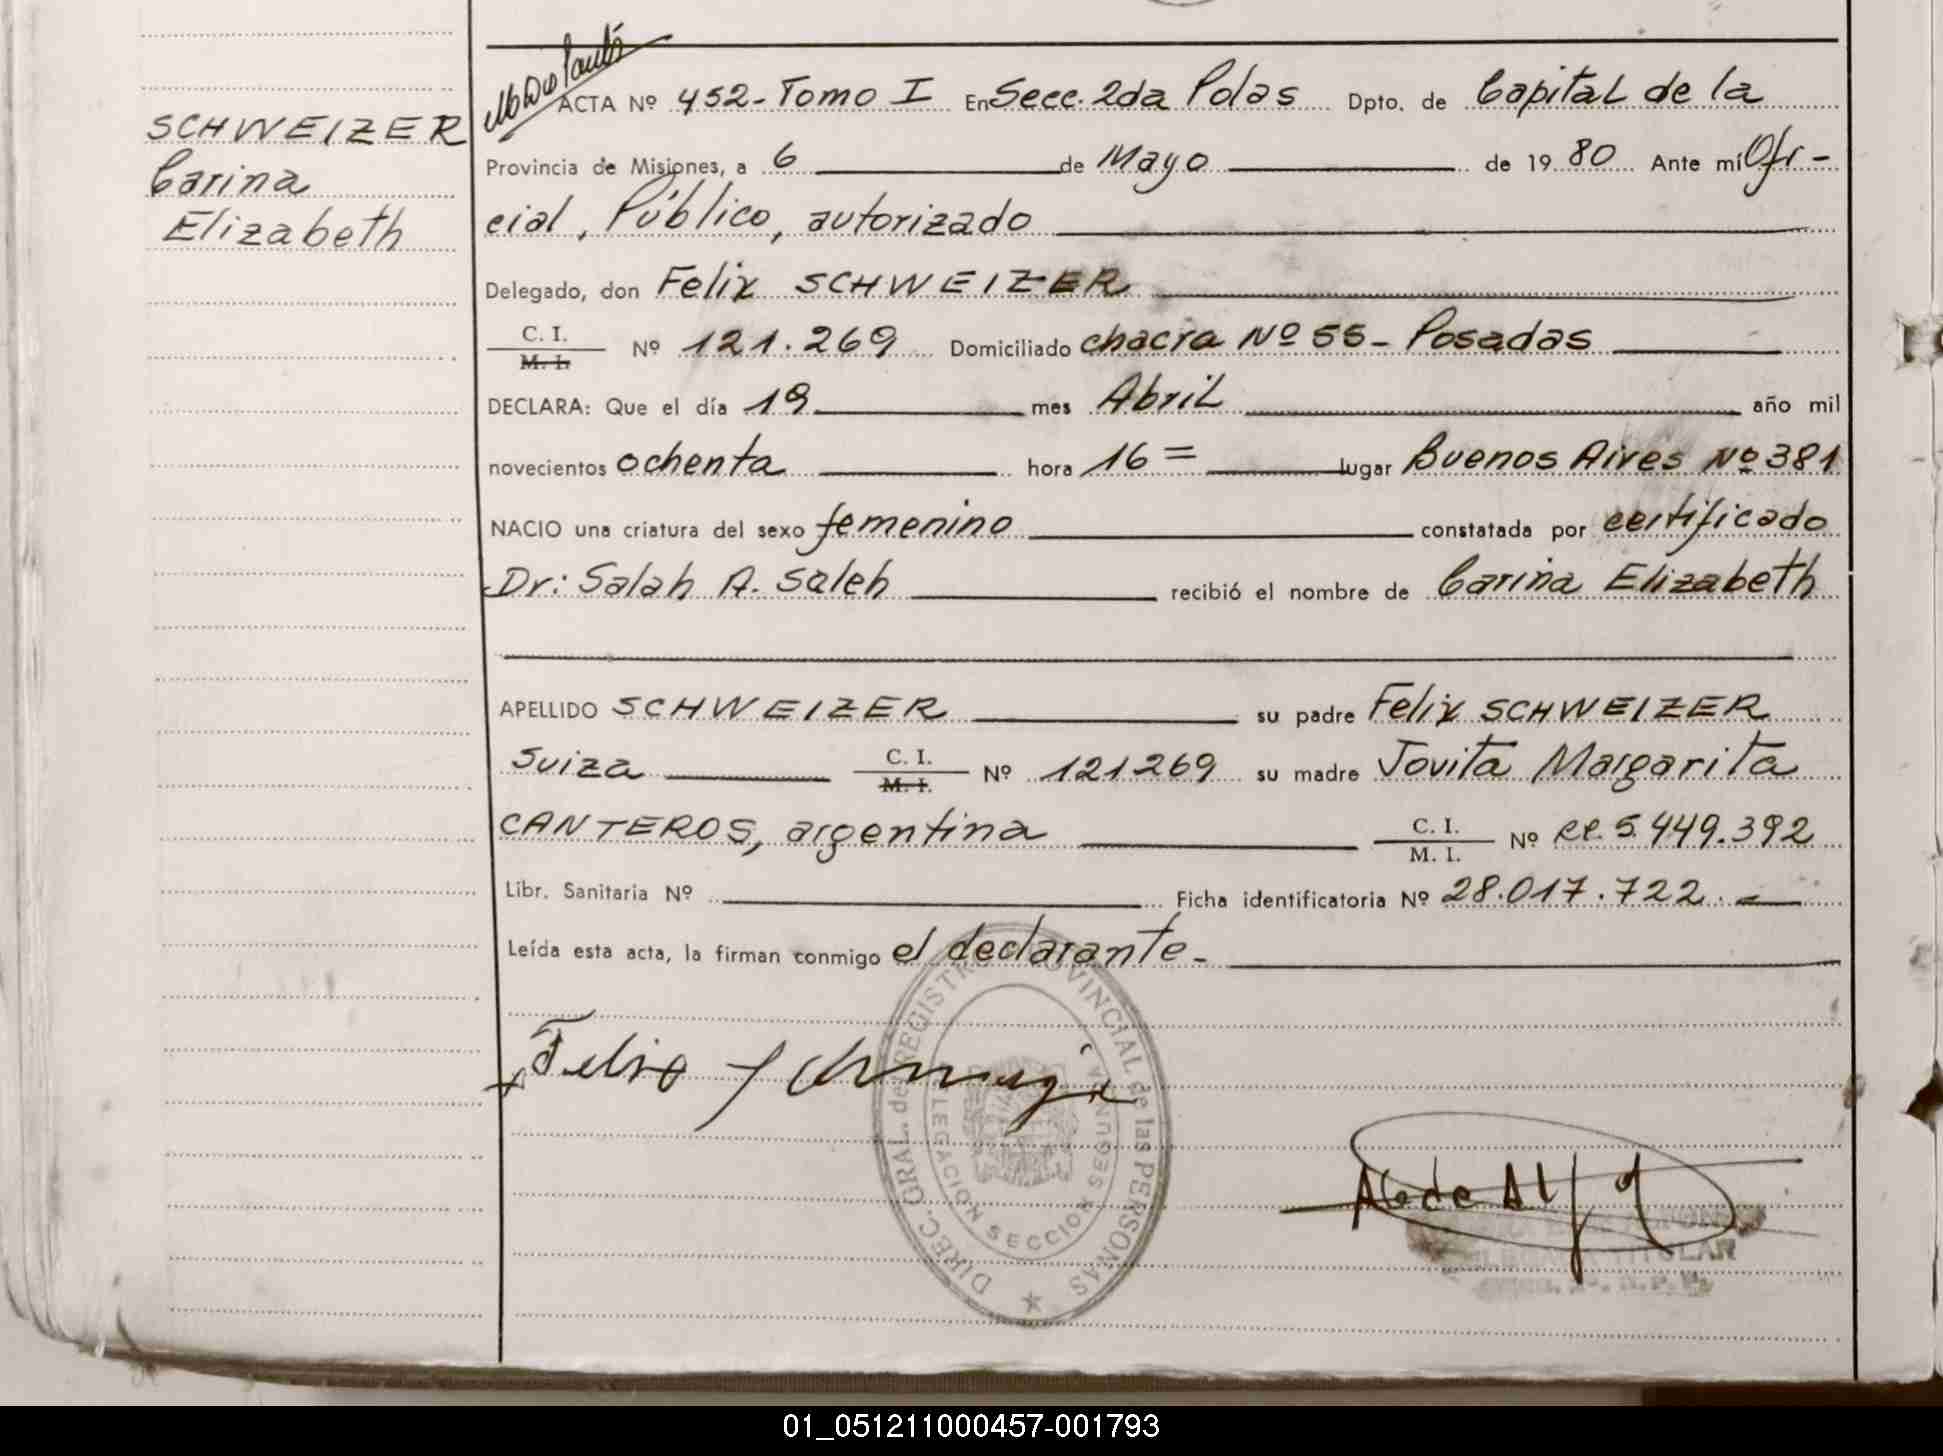 SCHWEIZER
Carina
Elizabeth
ACTA Nº 452-Tomo I En Secc. 2da Pdas Dpto. de Capital de la
Provincia de Misiones, a 6 de Mayo de 1980 Ante mí Ofi-
cial, Público, autorizado
Delegado, don Felix SCHWEIZER
C. I.
M. I. Nº 121.269 Domiciliado chacra Nº 55 - Posadas
DECLARA: Que el día 19 mes Abril año mil
novecientos ochenta hora 16= lugar Buenos Aires Nº 381
NACIO una criatura del sexo femenino constatada por certificado
Dr: Salah A. Saleh recibió el nombre de Carina Elizabeth
APELLIDO SCHWEIZER su padre Felix SCHWEIZER
Suiza C. I.
M. I. Nº 121269 su madre Jovita Margarita
CANTEROS, argentina C. I.
M. I. Nº 5.449.392
Libr. Sanitaria Nº Ficha identificatoria Nº 28.017.722.-
Leída esta acta, la firman conmigo el declarante-
DIREC. GRAL. de REGISTRO PROVINCIAL de las PERSONAS
DELEGACION SECCION SEGUNDA
TITULAR
01_051211000457-001793